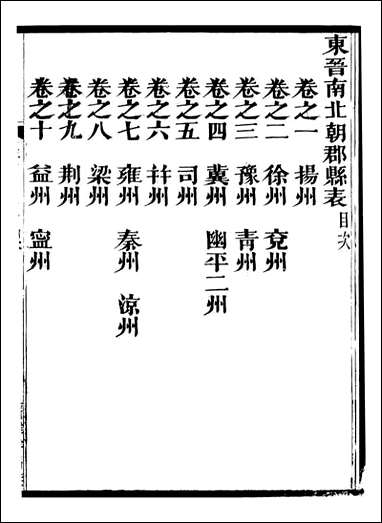 東晉南北朝郡縣表目次
卷之一 揚州
卷之二 徐州 兗州
卷之三 豫州 青州
卷之四 冀州 幽平二州
卷之五 司州
卷之六 幷州
卷之七 雍州 秦州 涼州
卷之八 梁州
卷之九 荆州
卷之十 益州 寧州